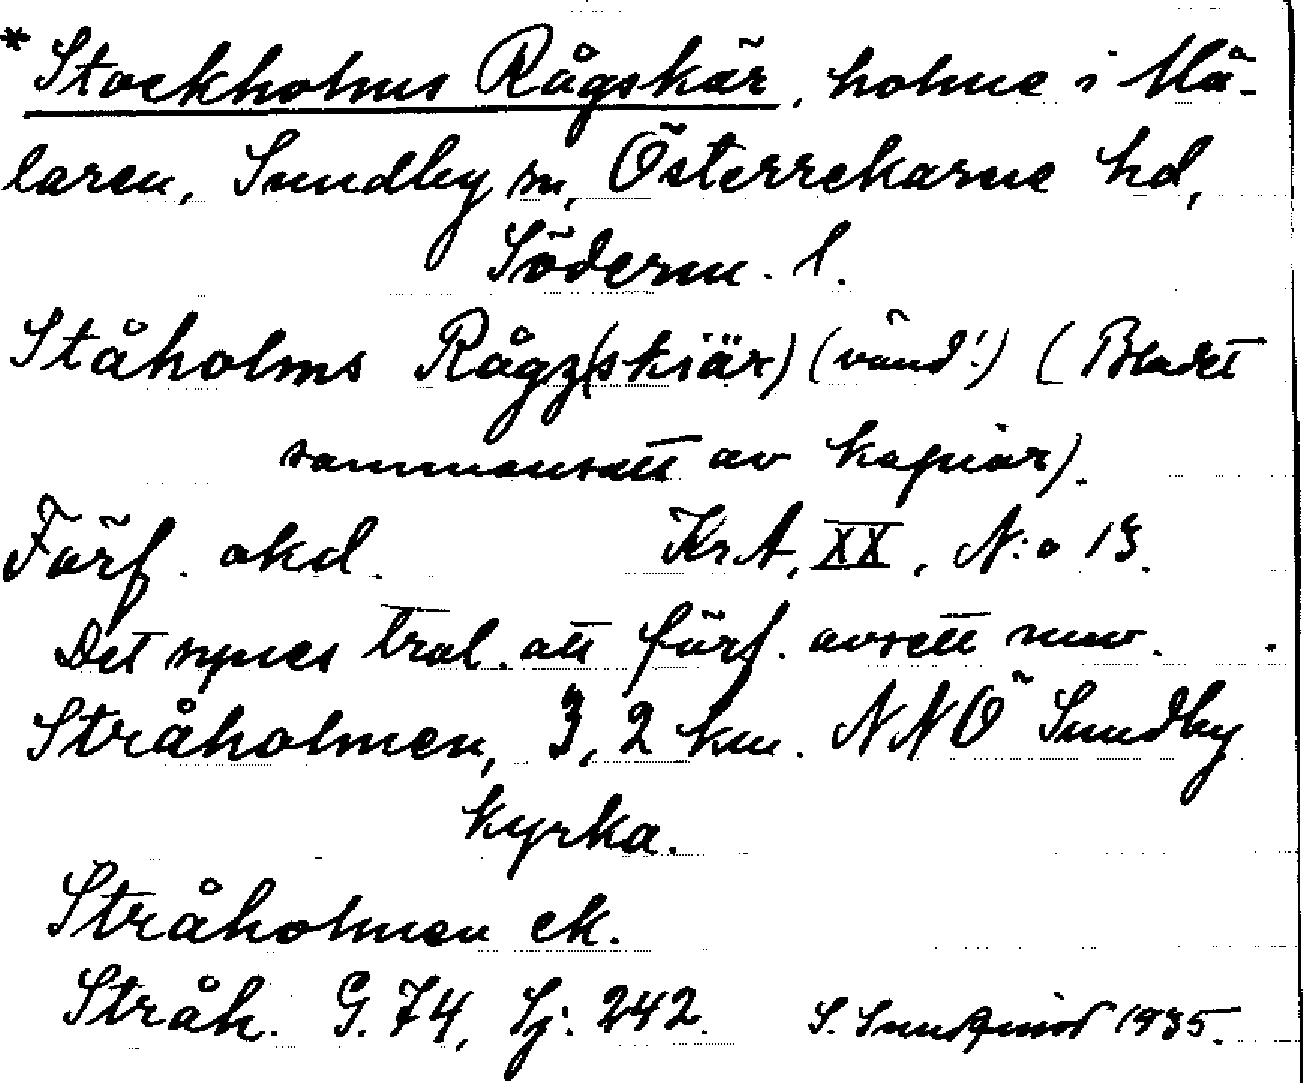 *Stockholms Rågskär, holme i Mä-
laren, Sundby sn, Österrekarne hd,
Söderm. l.
Ståholms Rågz(skiär) (vänd!) (Bladet
sammansatt av kopior).
Förf. okd. KrA, XX, N:o 13.
Det synes trol. att förf. avsett nuv.
Stråholmen, 3,2 km. NNÖ Sundby
kyrka.
Stråholmen ek.
Stråh. G. 74, Sj. 242. S. Sundqvist 1935.